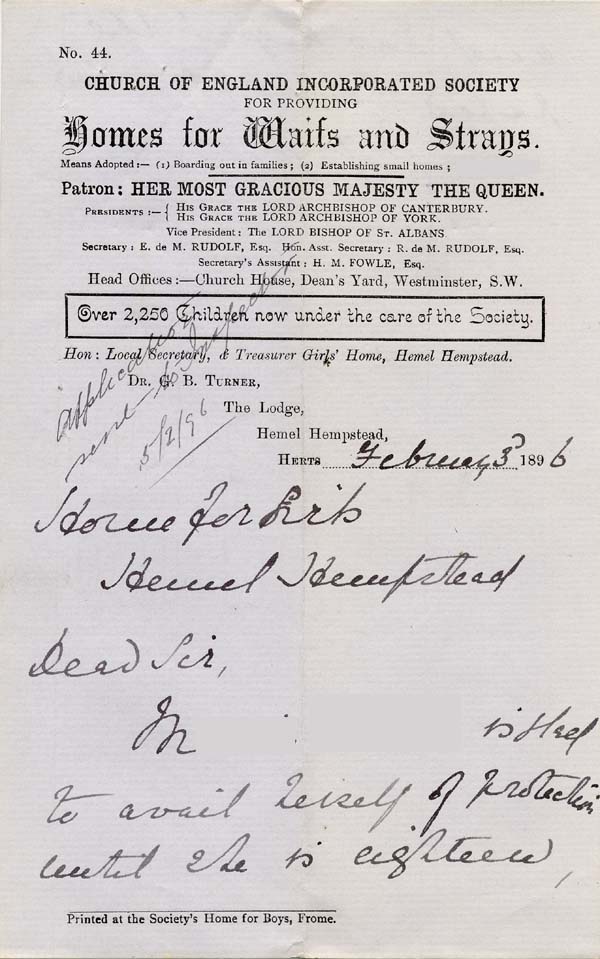 No. 44.
CHURCH OF ENGLAND INCORPORATED SOCIETY
FOR PROVIDING
Homes for Waifs and Strays.
Means Adopted :— (1) Boarding out in families ; (2) Establishing small homes ;
Patron: HER MOST GRACIOUS MAJESTY THE QUEEN.
PRESIDENTS :— { HIS GRACE THE LORD ARCHBISHOP OF CANTERBURY.
{ HIS GRACE THE LORD ARCHBISHOP OF YORK.
Vice President: The LORD BISHOP OF ST. ALBANS
Secretary : E. de M. RUDOLF, Esq. Hon. Asst. Secretary : R. de M. RUDOLF, Esq.
Secretary's Assistant : H. M. FOWLE, Esq.
Head Offices :—Church House, Dean's Yard, Westminster, S.W.
Over 2,250 Children now under the care of the Society.
Hon : Local Secretary, & Treasurer Girls' Home, Hemel Hempstead.
DR. G. B. TURNER,
The Lodge,
Hemel Hempstead,
HERTS February 3d 1896
Application
sent to Inspector
5/2/96
Home for Girls
Hemel Hempstead
Dear Sir,
M is glad
to avail herself of protection
until she is eighteen,
Printed at the Society's Home for Boys, Frome.